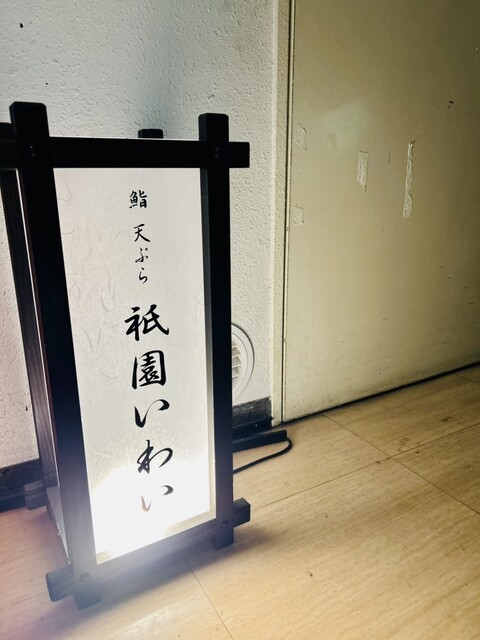 鮨 天ぷら
祇園いわい